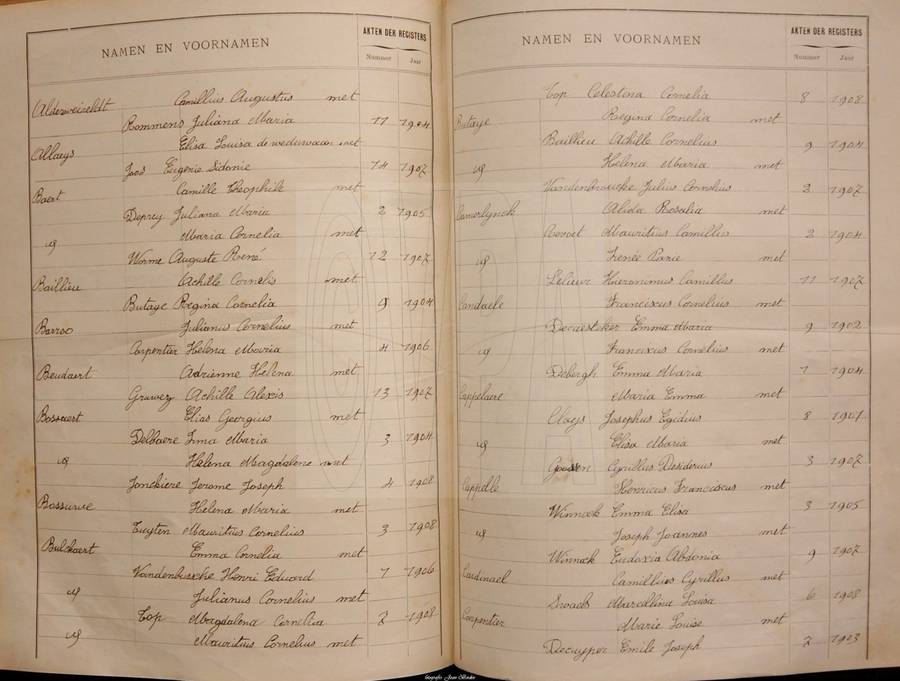 NAMEN EN VOORNAMEN AKTEN DER REGISTERS
Nummer Jaar
Alderweireldt Camillius Augustus met
Rommens Juliana Maria 11 1904
Allaeys Elisa Louisa de weduwvan met
Joos Eugenie Sidonie 14 1907
Baert Camille Theophile met
Deprey Juliana Maria 2 1905
id Maria Cornelia met
Worme Auguste Rene 12 1907
Baillieu Achille Cornelis met
Butaye Regina Cornelia 9 1904
Barroo Julianus Cornelius met
Carpentier Helena Maria 4 1906
Beudaert Adrienne Helena met
Gruwez Achille Alexis 13 1907
Bossaert Elias Georgius met
Delbaere Irma Maria 3 1904
id Helena Magdalene met
Jonckiere Jerome Joseph 4 1908
Bossuwe Helena Maria met
Tuyten Mauritius Cornelius 3 1908
Bulckaert Emma Cornelia met
Vandenbussche Henri Eduard 7 1906
id Julianus Cornelius met
Top Magdalena Cornelia 2 1908
id Mauritius Cornelius met
NAMEN EN VOORNAMEN AKTEN DER REGISTERS
Nummer Jaar
Top Celestina Cornelia 8 1908
Butaye Regina Cornelia met
Baillieu Achille Cornelius 9 1904
id Helena Maria met
Vandenbroucke Julius Cornelius 2 1907
Camerlynck Alida Rosalia met
Mauritius Camillius 2 1904
id Irenée met
Lelieur Hieronimus Camillus 11 1907
Candaele Franciscus Cornelius met
Emma Maria 9 1902
id Franciscus Cornelius met
Debergh Emma Maria 1 1904
Cappelaere Maria Emma met
Claeys Josephus Egidius 8 1901
id Elisa Maria met
Cyrillus Desiderius 3 1907
Cappelle Henricus Franciscus met
Winnock Emma Elisa 3 1905
id Joseph Joannes met
Winnock Eudoxia Abdonia 9 1907
Cardinael Camillius Cyrillus met
Swaels Marcellina Louisa 6 1908
Carpentier Marie Louise met
Decuyper Emile Joseph 2 1903